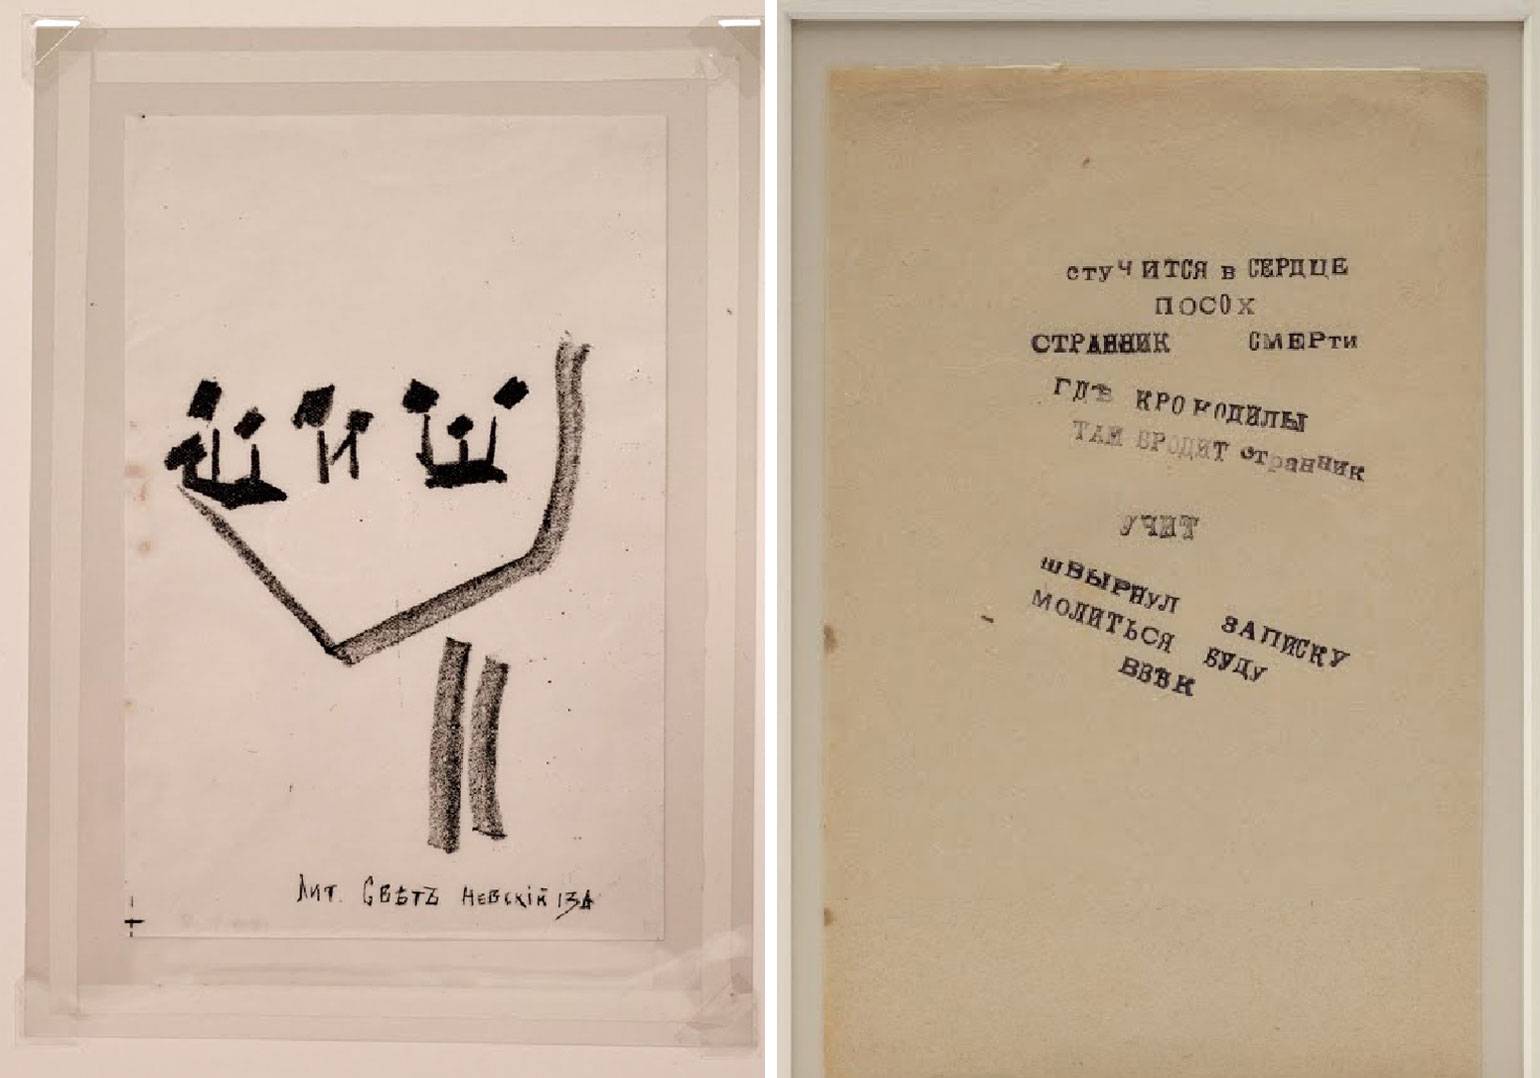 Лит. Свѣтъ Невскій
стуЧИТСЯ в СЕРДЦЕ
ПОСОХ
СТРАННИК СМЕРти
ГДѢ КРОКОДИЛЫ
ТАМ БРОДИТ странник
УЧИТ
шВЫРНУЛ ЗАПИСКУ
МОЛИТЬСЯ БУДУ
ВВѢК